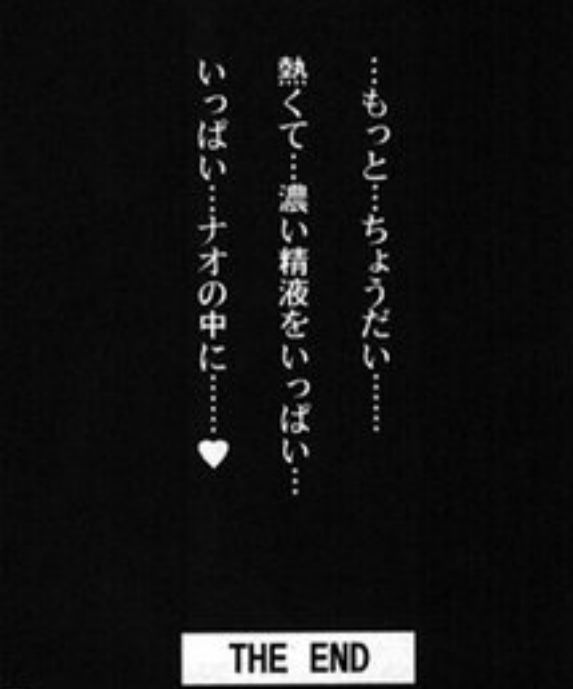 …もっと…ちょうだい……
熱くて…濃い精液をいっぱい…
いっぱい…ナオの中に……♥
THE END